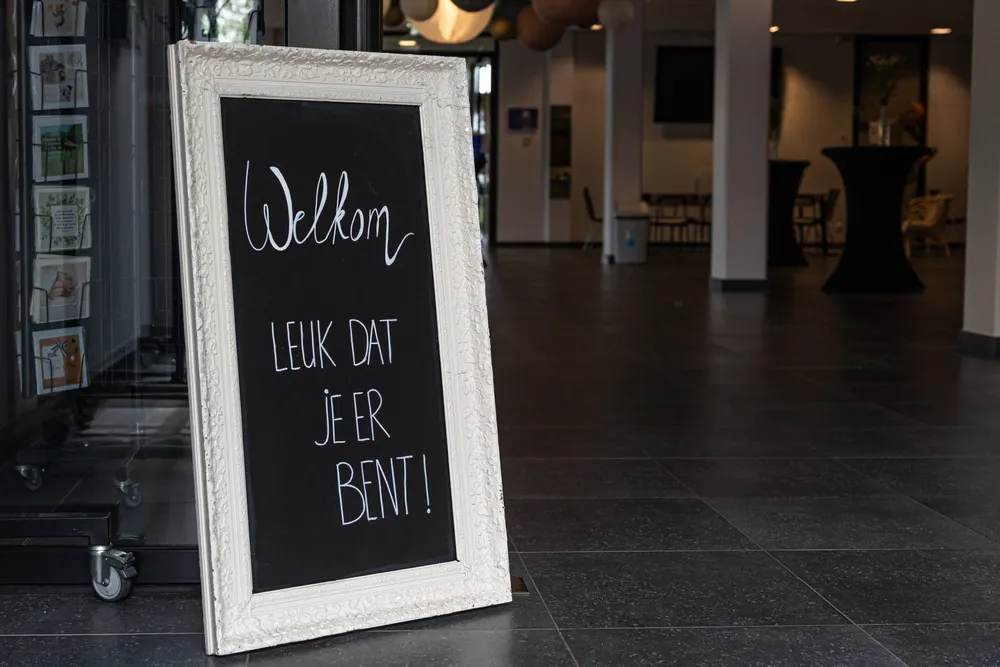 Welkom
LEUK DAT
jE ER
BENT!